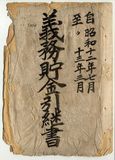 自昭和十二年七月
至〃十三年三月
義務貯金引継書